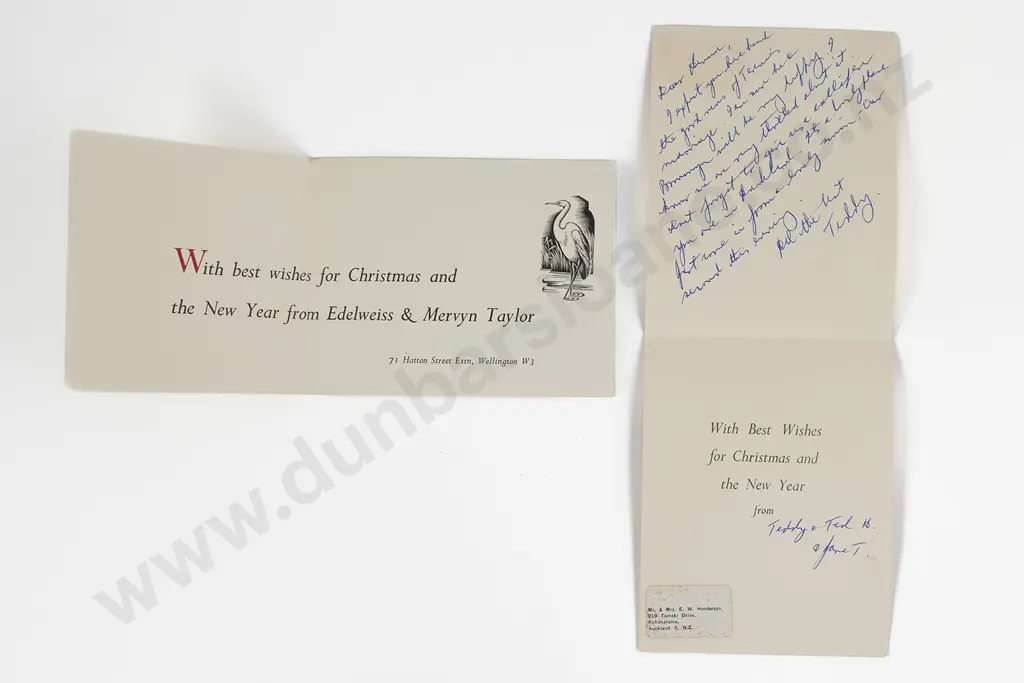 With best wishes for Christmas and
the New Year from Edelweiss & Mervyn Taylor
71 Hatton Street Extn, Wellington W3
Dear
I expect you have heard
the good news of
marriage. I am sure
will be very happy. I
know we are very thrilled about it
Don't forget to give us a call if ever
you are in Auckland. It's a lovely place
Just come in from a lovely swim - our
second this evening.
All the best
Teddy.
With Best Wishes
for Christmas and
the New Year
from
Teddy & Ted H.
& Jane T.
Mr. & Mrs. E. W. Henderson,
219 Tamaki Drive,
Kohimarama,
Auckland 5, N.Z.
www.dunbarsloane.co.nz